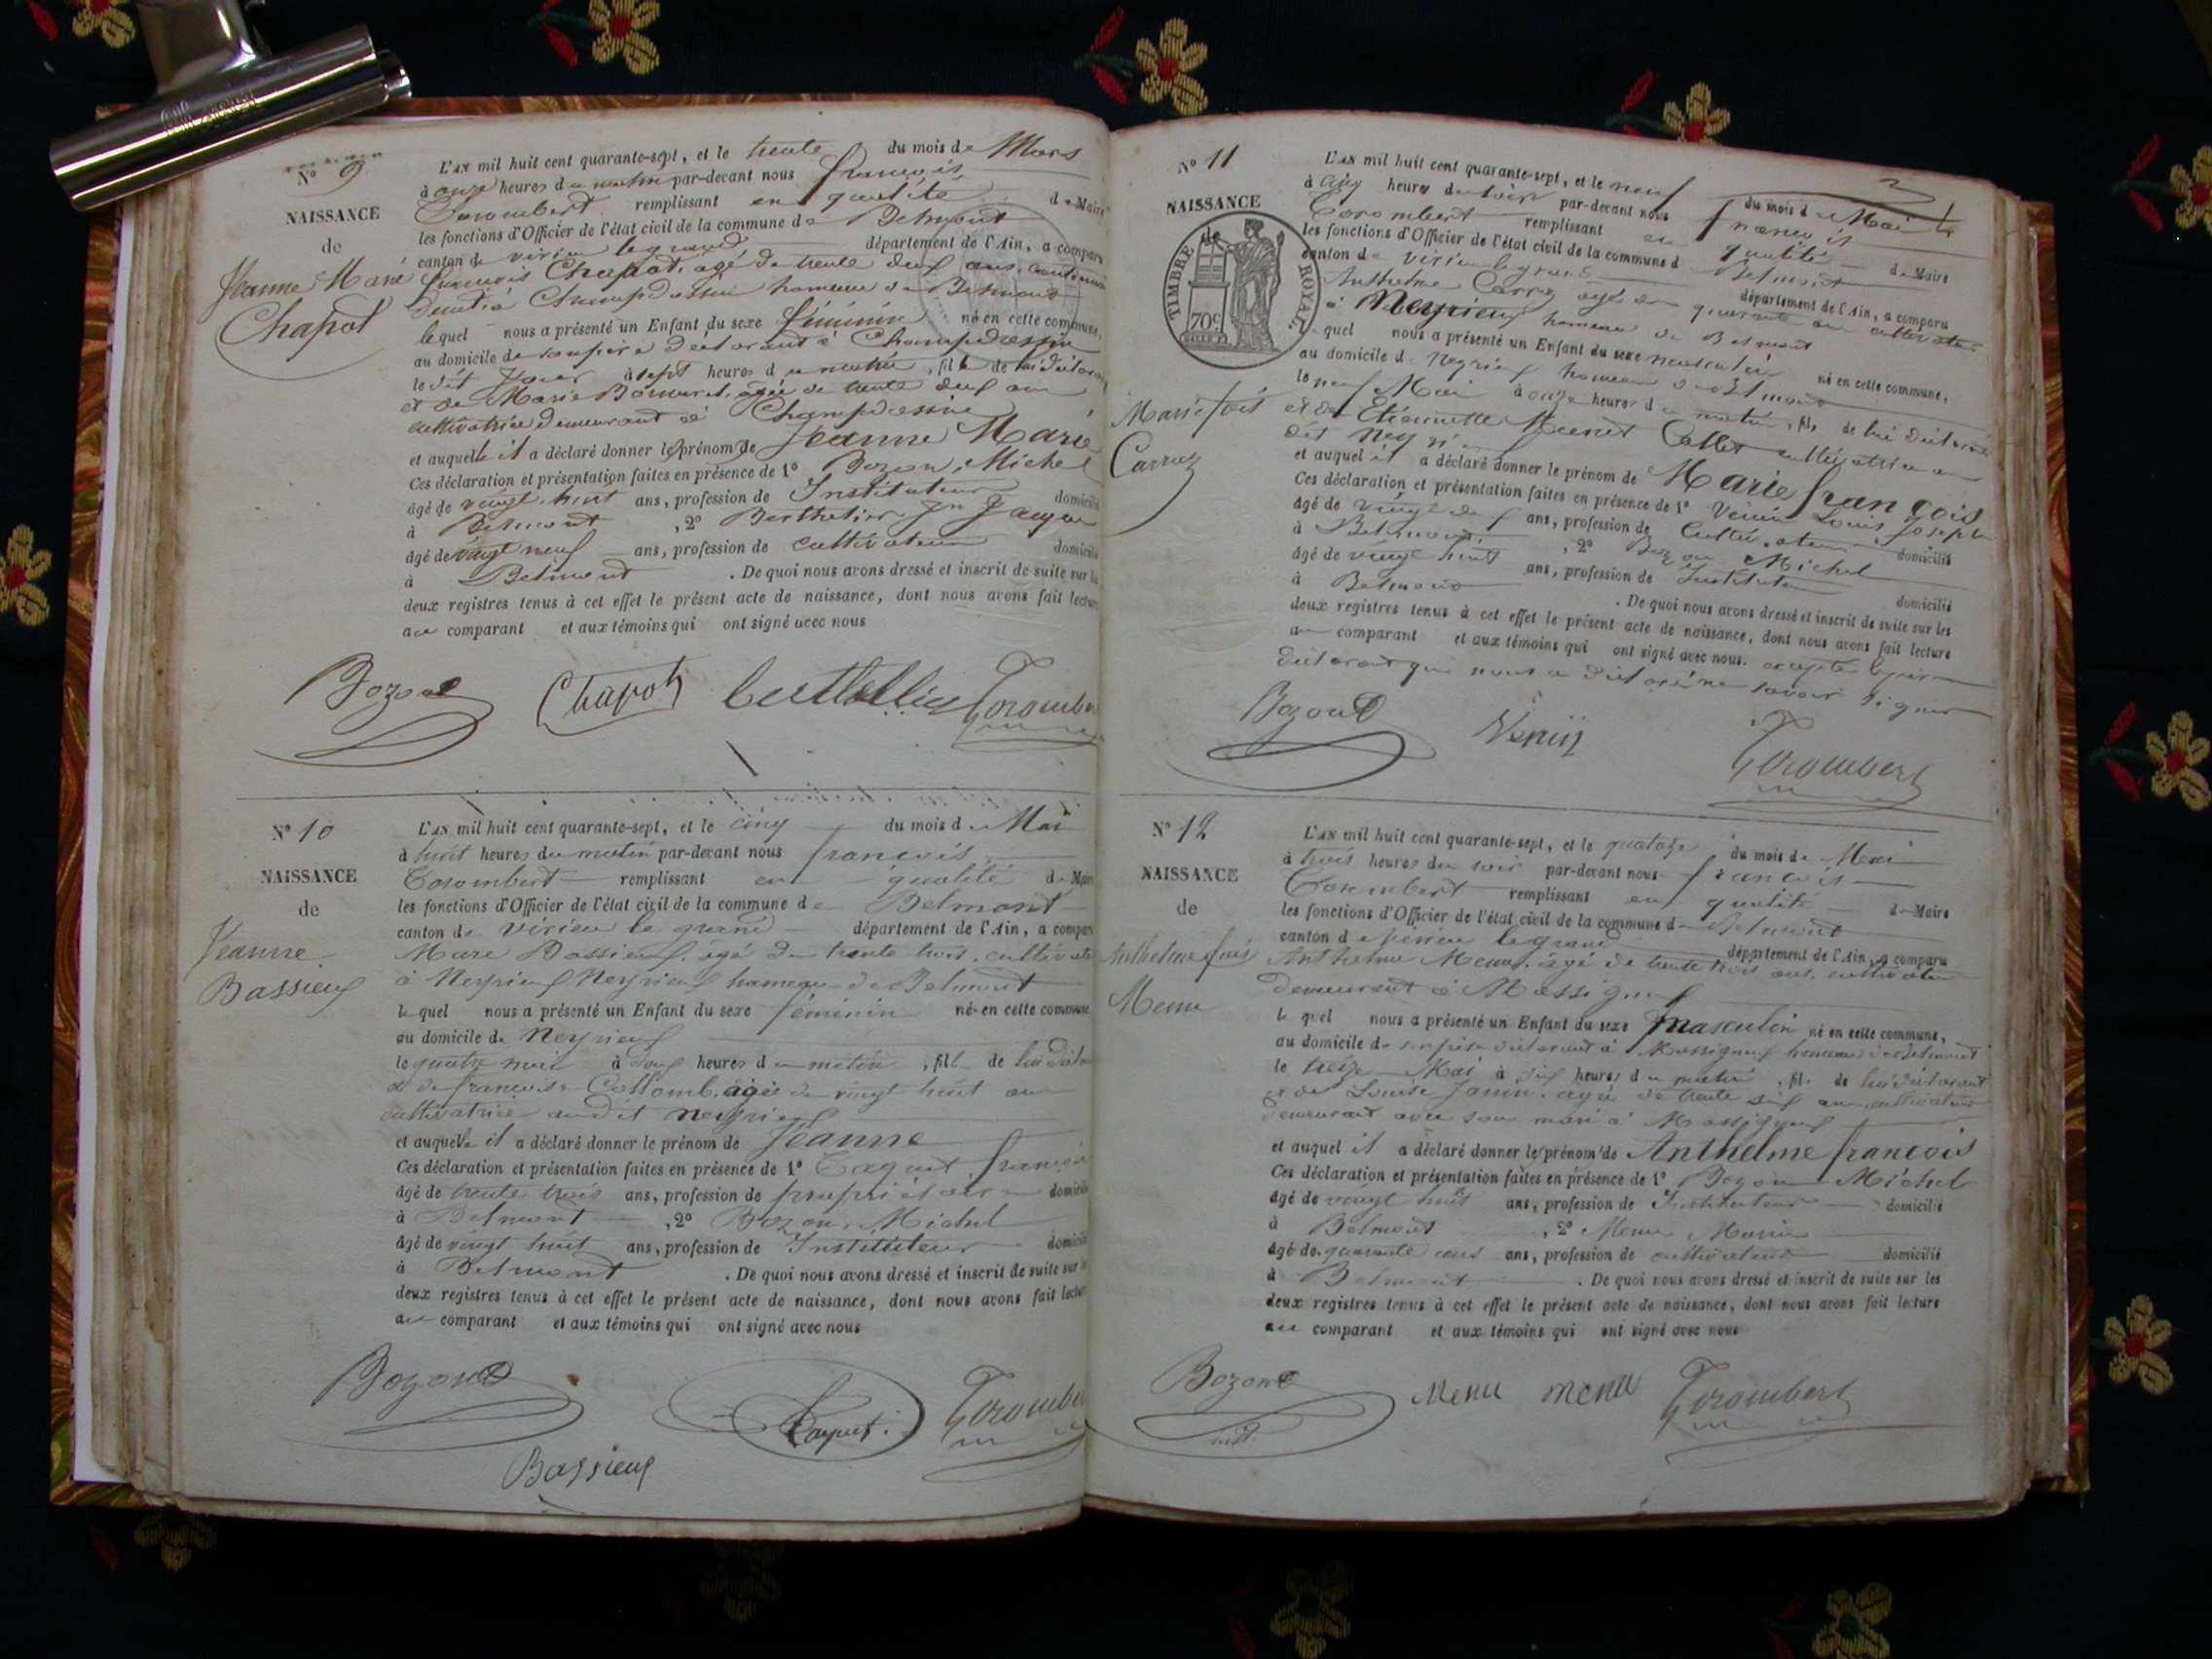 N° 9
NAISSANCE
de
Jeanne Marie
Chapot
L'AN mil huit cent quarante-sept, et le trente du mois de Mars
à onze heures du matin par-devant nous françois
Corombert remplissant en qualité de Maire
les fonctions d'Officier de l'état civil de la commune de Belmont
canton de virieu legrand département de l'Ain, a comparu
françois Chapot, âgé de trente deux ans, 
hameau de Belmont
lequel nous a présenté un Enfant du sexe féminin né en cette commune,
au domicile de son père déclarant à Champdossin
le dit jour à sept heures du matin, fille de lui déclarant
et de Marie âgée de trente deux ans
cultivatrice demeurant à Champdossin
et auquelle il a déclaré donner les prénom de Jeanne Marie
Ces déclaration et présentation faites en présence de 1° Bozon, Michel
âgé de vingt-huit ans, profession de Instituteur domicilié
à Belmont, 2° Berthelier
âgé de vingt neuf ans, profession de cultivateur domicilié
à Belmont. De quoi nous avons dressé et inscrit de suite sur les
deux registres tenus à cet effet le présent acte de naissance, dont nous avons fait lecture
au comparant et aux témoins qui ont signé avec nous
Bozon Chapot Berthellier Corombert
N° 10
NAISSANCE
de
Jeanne
Bassieux
L'AN mil huit cent quarante-sept, et le cinq du mois de Mai
à huit heures du matin par-devant nous françois
Corombert remplissant en qualité de Maire
les fonctions d'Officier de l'état civil de la commune de Belmont
canton de virieu le grand département de l'Ain, a comparu
Marc Bassieux, âgé de trente trois, cultivateur
à Neyrieux Neyrieux hameau de Belmont
lequel nous a présenté un Enfant du sexe féminin né en cette commune
au domicile de Neyrieux
le quatre mai à heures du matin, fille de lui déclarant
et de françoise Collomb, âgée de vingt huit ans
cultivatrice audit Neyrieux
et auquelle il a déclaré donner le prénom de Jeanne
Ces déclaration et présentation faites en présence de 1° Caquet, françois
âgé de trente trois ans, profession de propriétaire domicilié
à Belmont, 2° Bozon, Michel
âgé de vingt huit ans, profession de Instituteur domicilié
à Belmont. De quoi nous avons dressé et inscrit de suite sur les
deux registres tenus à cet effet le présent acte de naissance, dont nous avons fait lecture
au comparant et aux témoins qui ont signé avec nous
Bozon Caquet. Corombert
Bassieux
N° 11
NAISSANCE
de
TIMBRE ROYAL.
70c
Marie fois
Carraz
L'AN mil huit cent quarante-sept, et le neuf du mois de Mai
à cinq heures du soir par-devant nous françois
Corombert remplissant en qualité de Maire
les fonctions d'Officier de l'état civil de la commune de Belmont
canton de virieu legrand département de l'Ain, a comparu
Anthelme Carraz âgé de quarante ans cultivateur
à Neyrieux hameau de Belmont
lequel nous a présenté un Enfant du sexe masculin né en cette commune,
au domicile de Neyrieux hameau de Belmont
le neuf Mai à onze heures du matin, fils de lui déclarant
et de Etiennette Collet cultivatrice au
dit
et auquel il a déclaré donner le prénom de Marie françois
Ces déclaration et présentation faites en présence de 1° Venin Louis Joseph
âgé de ans, profession de cultivateur domicilié
à Belmont, 2° Bozon Michel
âgé de vingt huit ans, profession de Instituteur domicilié
à Belmont. De quoi nous avons dressé et inscrit de suite sur les
deux registres tenus à cet effet le présent acte de naissance, dont nous avons fait lecture
au comparant et aux témoins qui ont signé avec nous. excepté le père
déclarant qui nous a déclaré ne savoir signer
Bozon Venin Corombert
N° 12
NAISSANCE
de
Anthelme fois
Menu
L'AN mil huit cent quarante-sept, et le quatorze du mois de Mai
à trois heures du soir par-devant nous françois
Corombert remplissant en qualité de Maire
les fonctions d'Officier de l'état civil de la commune de Belmont
canton de virieu legrand département de l'Ain, a comparu
Anthelme Menu, âgé de trente trois ans, cultivateur
demeurant à Massignieu
lequel nous a présenté un Enfant du sexe masculin né en cette commune,
au domicile de son père déclarant à Massignieu hameau de Belmont
le treize Mai à six heures du matin, fils de lui déclarant
et de Louise Janin, âgée de trente six ans, cultivatrice
demeurant avec son mari à Massignieu
et auquel il a déclaré donner les prénom de Anthelme françois
Ces déclaration et présentation faites en présence de 1° Bozon Michel
âgé de vingt huit ans, profession de Instituteur domicilié
à Belmont, 2° Menu
âgé de quarante ans ans, profession de cultivateur domicilié
à Belmont. De quoi nous avons dressé et inscrit de suite sur les
deux registres tenus à cet effet le présent acte de naissance, dont nous avons fait lecture
au comparant et aux témoins qui ont signé avec nous
Bozon Menu menu Corombert